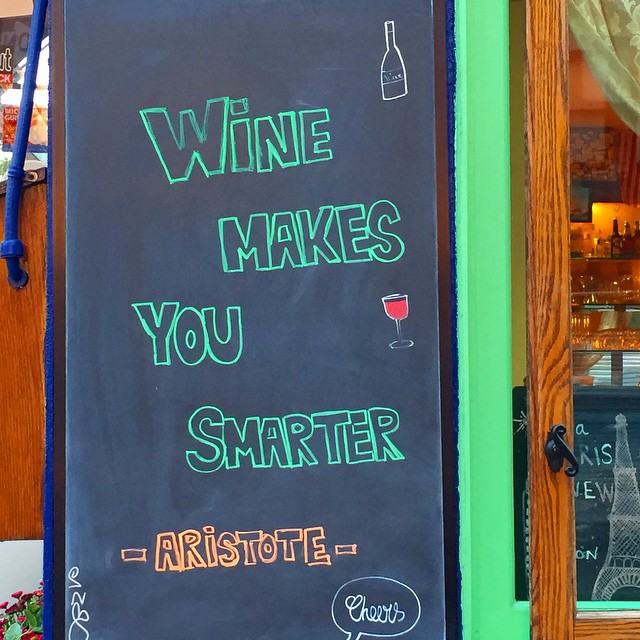 Wine
WINE
MAKES
YOU
SMARTER
- ARISTOTE -
Cheers
a
RIS
EW
ON